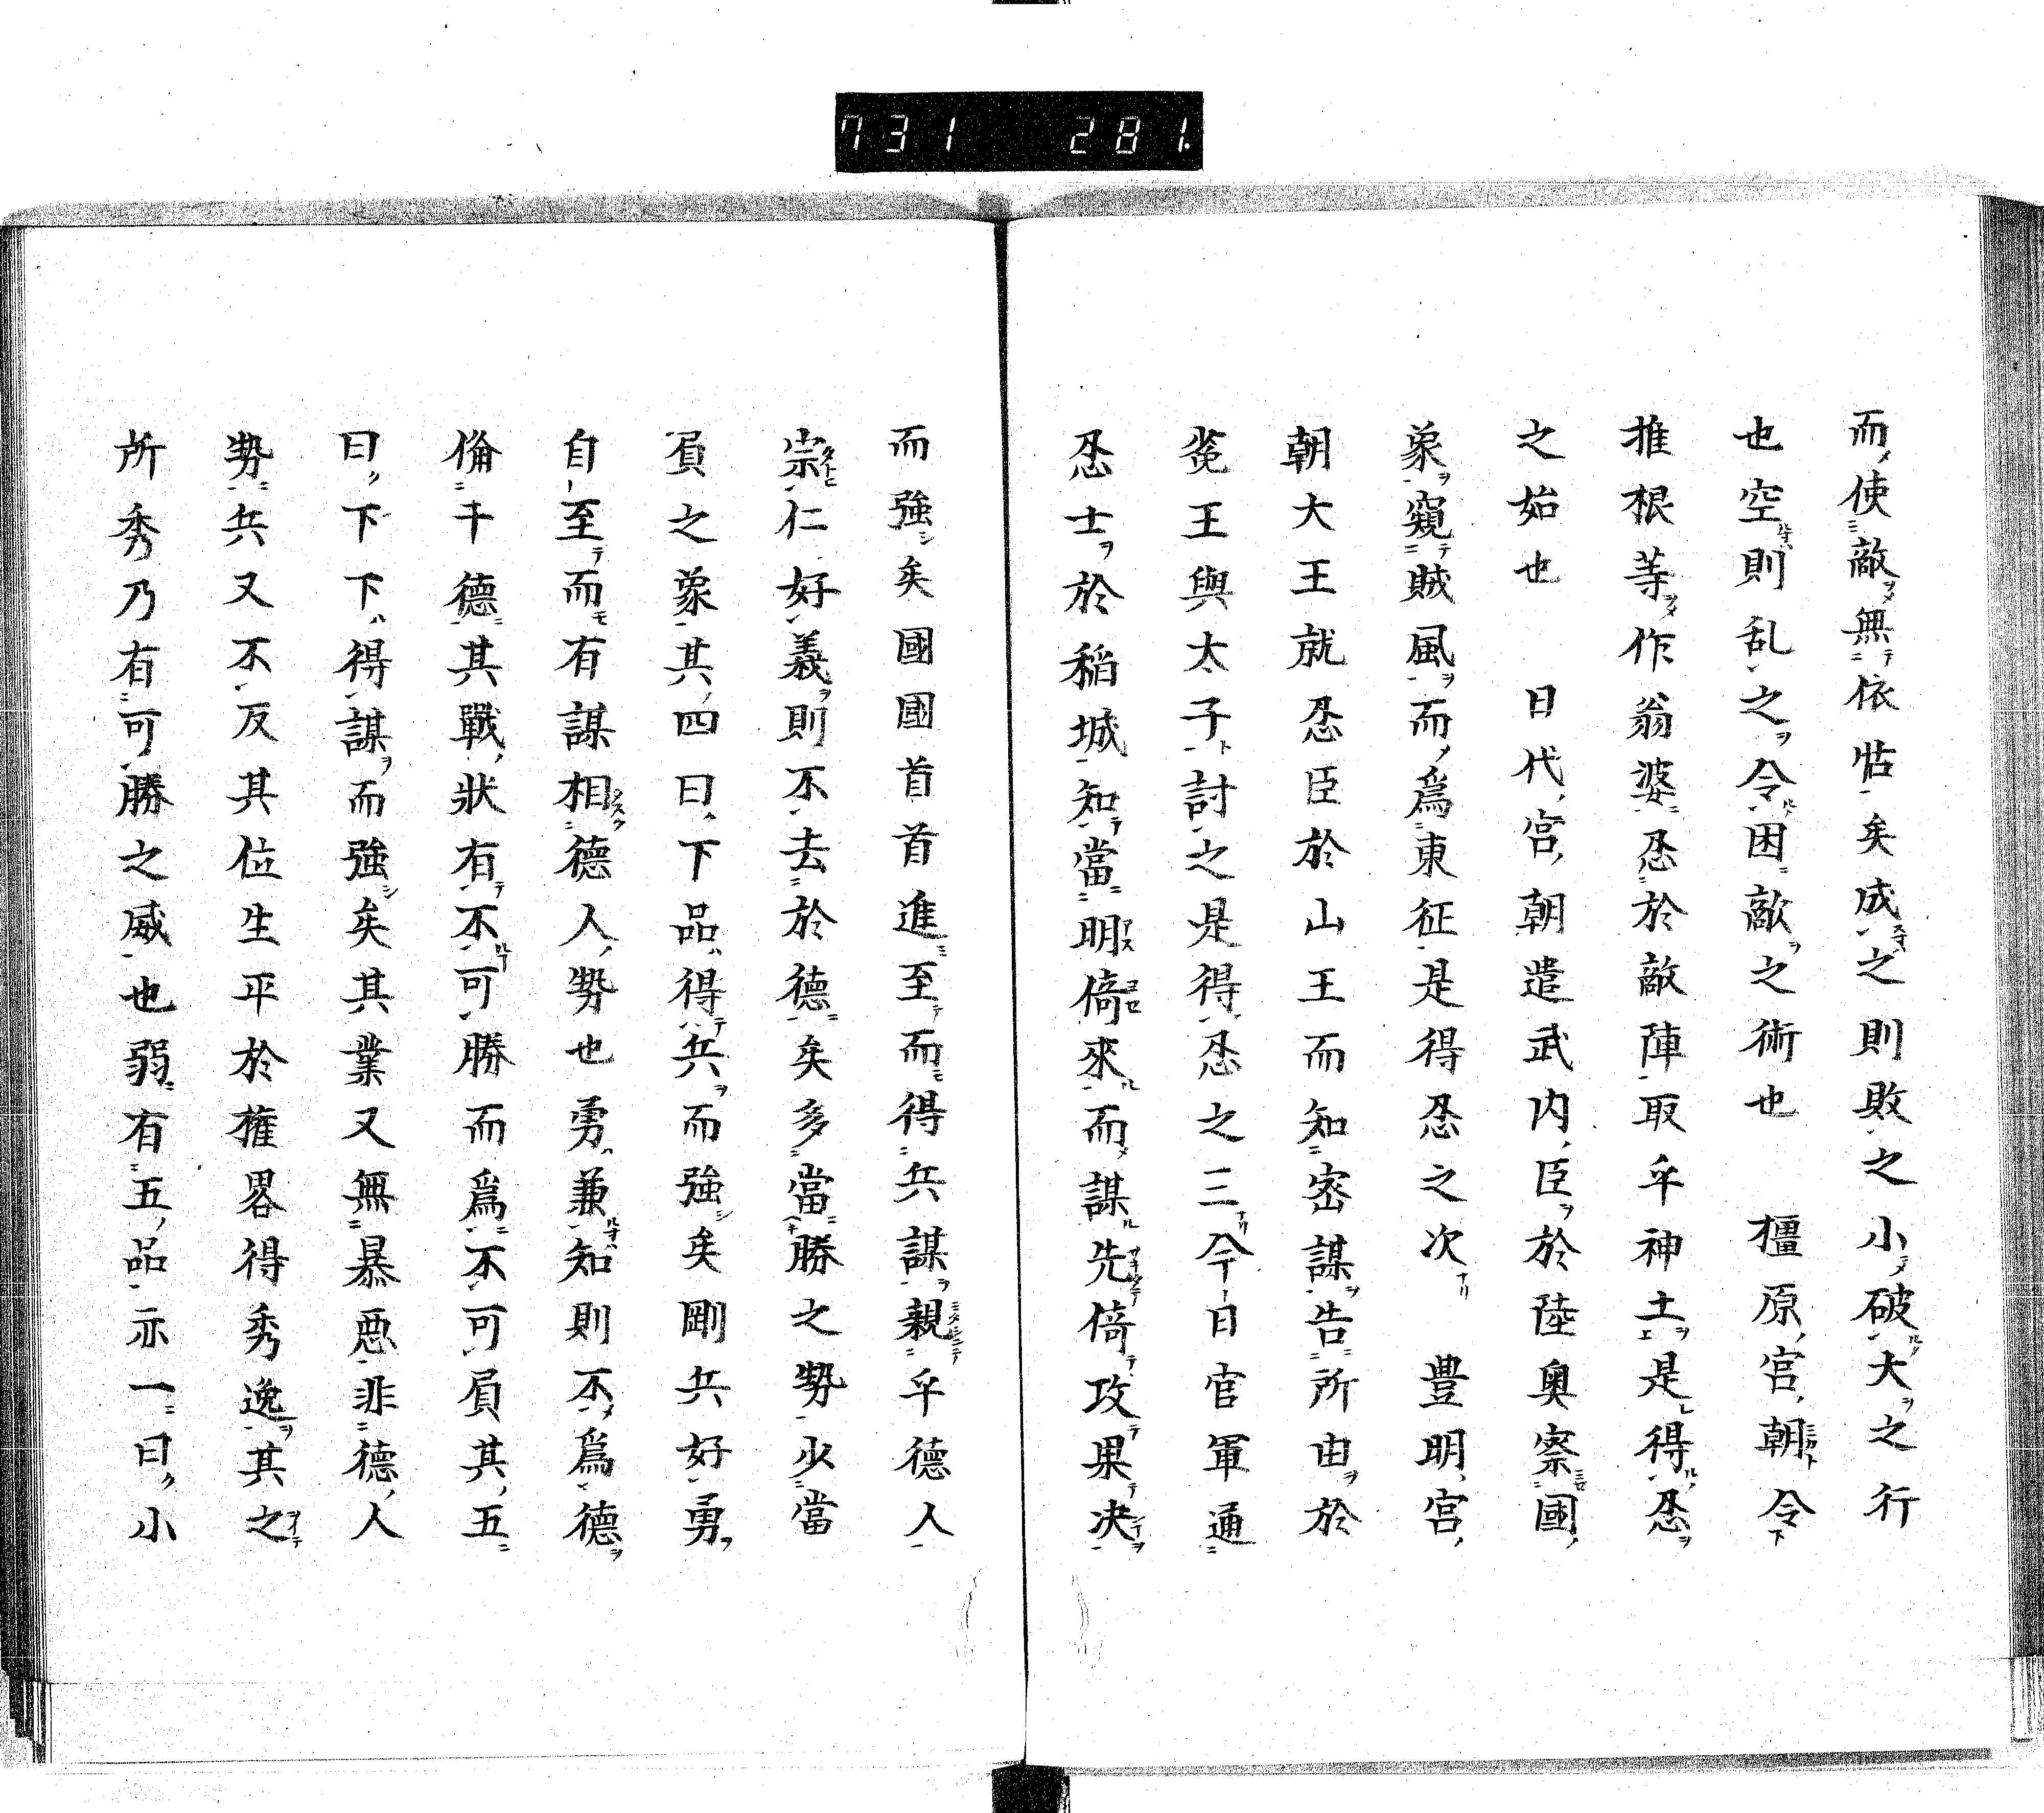 731 281.
而使敵無依怙矣成之則敗之小破大之行
也空則乱之令困敵之術也 橿原宮朝令
推根等作翁婆忍於敵陣取乎神土是得忍
之始也 日代宮朝遣武内臣於陸奥察國
象窺賊風而為東征是得忍之次 豊明宮
朝大王就忍臣於山王而知密謀告所由於
菟王與太子討之是得忍之三今日官軍通
忍士於稲城知當明倚來而謀先倚攻果决
而強矣國國首首進至而得兵謀親乎德人
崇仁好義則不去於德矣多當勝之勢少當
負之象其四曰下品得兵而強矣剛兵好勇
自至而有謀相德人勢也勇兼知則不為德
倫干德其戰狀有不可勝而為不可負其五
曰下下得謀而強矣其業又無暴惡非德人
勢兵又不反其位生平於權畧得秀逸其之
所秀乃有可勝之威也弱有五品亦一曰小